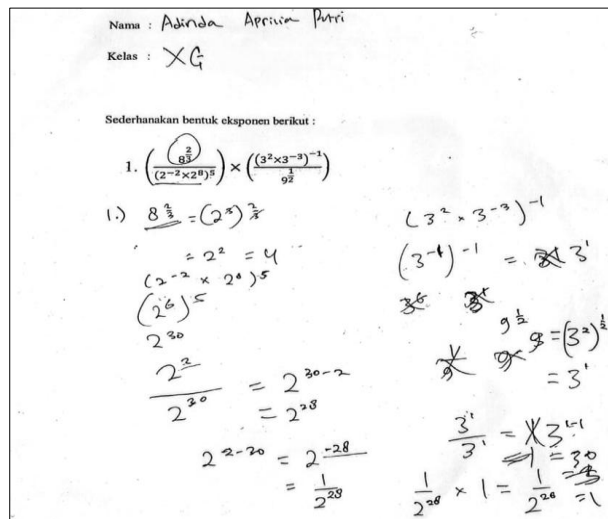 Nama : Adinda Aprilia Putri
Kelas : XG
Sederhanakan bentuk eksponen berikut :
1. (8^(2/3) / (2^-2×2^8)^5) × ((3^2×3^-3)^-1 / 9^(1/2))
1.) 8^(2/3) = (2^3)^(2/3)
= 2^2 = 4
(2^-2 × 2^8)^5
(2^6)^5
2^30
2^2 / 2^30 = 2^30-2
= 2^28
2^2-30 = 2^-28
= 1/2^28
(3^2 × 3^-3)^-1
(3^-1)^-1 = 3^1
9^(1/2) = (3^2)^(1/2)
= 3^1
3^1 / 3^1 = 3^1-1
= 3^0
= 1
1/2^28 × 1 = 1/2^28